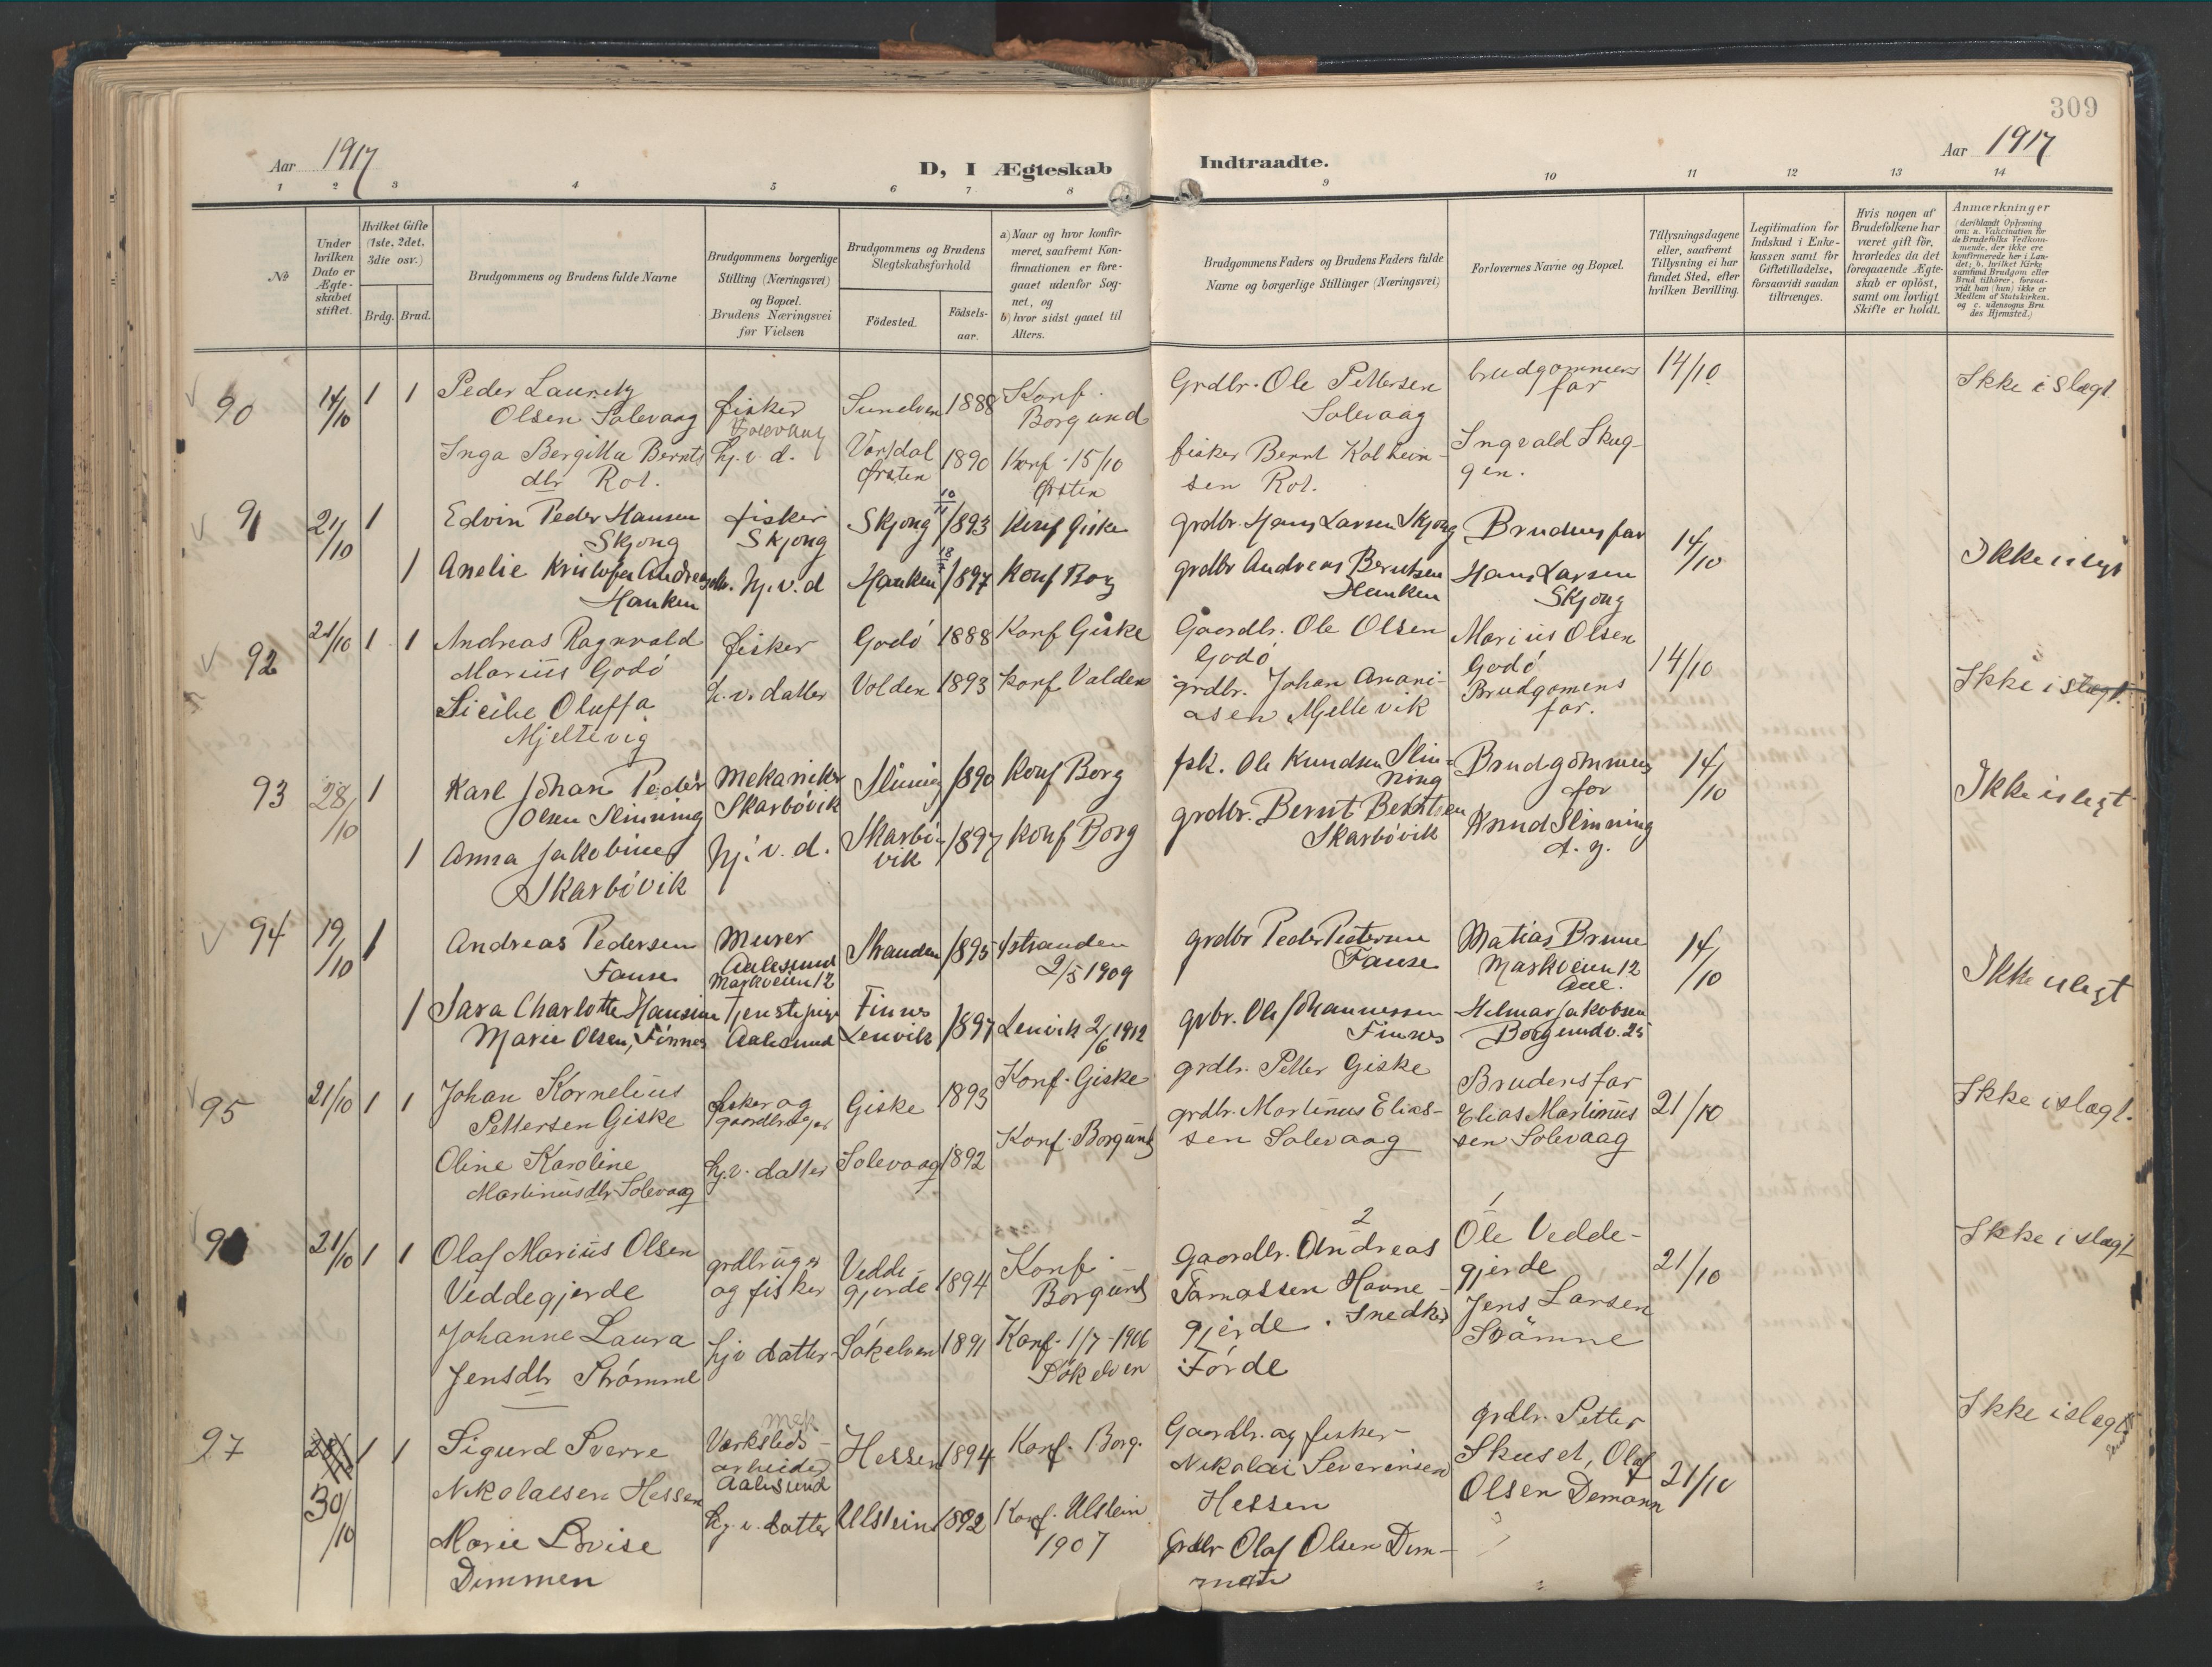 309
Aar 1917
D, I Ægteskab Indtraadte.
Aar 1917
1 2 3 4 5 6 7 8 9 10 11 12 13 14
No
Under hvilken Dato er Ægteskabet stiftet.
Hvilket Gifte (1ste, 2det, 3die osv.)
Brdg. Brud.
Brudgommens og Brudens fulde Navne
Brudgommens borgerlige Stilling (Næringsvei) og Bopæl. Brudens Næringsvei før Vielsen
Brudgommens og Brudens Slegtskabsforhold
Fødested.
Fødselsaar.
a) Naar og hvor konfirmeret, saafremt Konfirmationen er foregaaet udenfor Sognet, og
b) hvor sidst gaaet til Alters.
Brudgommens Faders og Brudens Faders fulde Navne og borgerlige Stillinger (Næringsvei)
Forlovernes Navne og Bopæl.
Tillysningsdagene eller, saafremt Tillysning ei har fundet Sted, efter hvilken Bevilling.
Legitimation for Indskud i Enkekassen samt for Giftetilladelse, forsaavidt saadan tiltrænges.
Hvis nogen af Brudefolkene har været gift før, hvorledes da det foregaaende Ægteskab er opløst, samt om lovligt Skifte er holdt.
Anmærkninger
(deriblandt Oplysning om: a. Vakcination for de Brudefolks Vedkommende, der ikke ere konfirmerede her i Landet; b. hvilket Kirkesamfund Brudgom eller Brud tilhører, forsaavidt han (hun) ikke er Medlem af Statskirken. og c. udensogns Brudes Hjemsted.)
90 14/10 1 1 Peder Lauritz fisker 1888 Konf. Grdbr. Ole Pettersen brudgommens 14/10 Ikke i slægt
Olsen Solevaag Solevaag Borgund Solevaag far
Inga Bergitta Bernts hj. v. d. Vartdal 1890 Konf. 15/10 fisker Bernt Kolbein- Ingvald Skug-
dtr Rot. Ørsten Ørsten sen Rot. gen.
91 21/10 1 Edvin Peder Hansen fisker Skjong 10/11 1893 Konf Giske grdbr. Hans Larsen Skjong Brudens far 14/10
Skjong Skjong
1 Anelie Kristofa Andreasdtr. hj. v. d Hanken 18/ 1897 Konf Borg grdbr Andreas Berntsen Hans Larsen
Hanken Hanken Skjong
92 21/10 1 1 Andreas Ragnvald fisker Godö 1888 Konf Giske Gaardbr. Ole Olsen Marius Olsen 14/10 Ikke i slægt.
Marius Godö Godö Godö
Sicilie Oluffa h. v. datter Volden 1893 Konf Valden grdbr. Johan Anani- Brudgomens
Mjeltevig asen Mjeltevik far.
93 28/10 1 Karl Johan Peder Mekaniker Slinning 1890 Konf Borg fsk. Ole Knudsen Slin- Brudgommens 14/10
Olsen Slinning Skarbövik ning far
1 Anna Jakobine hj. v. d. Skarbö- 1897 Konf Borg grdbr. Bernt Berntsen Knud Slinning
Skarbövik vik Skarbövik d. y.
94 19/10 1 Andreas Pedersen Murer Stranden 1895 Stranden grdbr Peder Petersen Matias Brune 14/10
Fause Aalesund 2/5 1909 Fause Markveien 12
Markveien 12 Aal.
1 Sara Charlotte Hansine Tjenstepige Finnes 1897 Lenvik 2/6 1912 grbr. Ole Johannessen Helmar Jakobsen
Marie Olsen, Finnes Aalesund Lenvik Finnes Borgundv. 25
95 21/10 1 1 Johan Kornelius fisker og Giske 1893 Konf. Giske grdbr. Petter Giske Brudens far 21/10 Ikke i slægt.
Pettersen Giske gaardbruger
Oline Karoline hj. v. datter Solevaag 1892 Konf. Borgund grdbr. Martinus Elias- Elias Martinus
Martinusdtr Solevaag sen Solevaag sen Solevaag
21/10 1 1 Olaf Marius Olsen grdbruger Vedde- 1894 Konf. 2 1 21/10 Ikke i slægt
Veddegjerde og fisker gjerde Borgund Gaardbr. Andreas Ole Vedde-
Tomassen Havne- gjerde
Johanne Laura hjv datter Sökelven 1891 Konf. 1/7-1906 gjerde. Snedker Jens Larsen
Jensdtr Strömme Sökelven Förde Strömme
97 30/10 1 1 Sigurd Sverre Værksteds- Hessen 1894 Konf. Borg. Gaardbr. og fisker grdbr. Petter 21/10 Ikke i slægt
Nikolaisen Hessen mek arbeider Nikolai Severinsen Skuset, Olaf
Aalesund Hessen Olsen Demann
Marie Lovise hj. v. datter Ulstein 1892 Konf. Ulstein Grdbr Olaf Olsen Dim-
Dimmen 1907